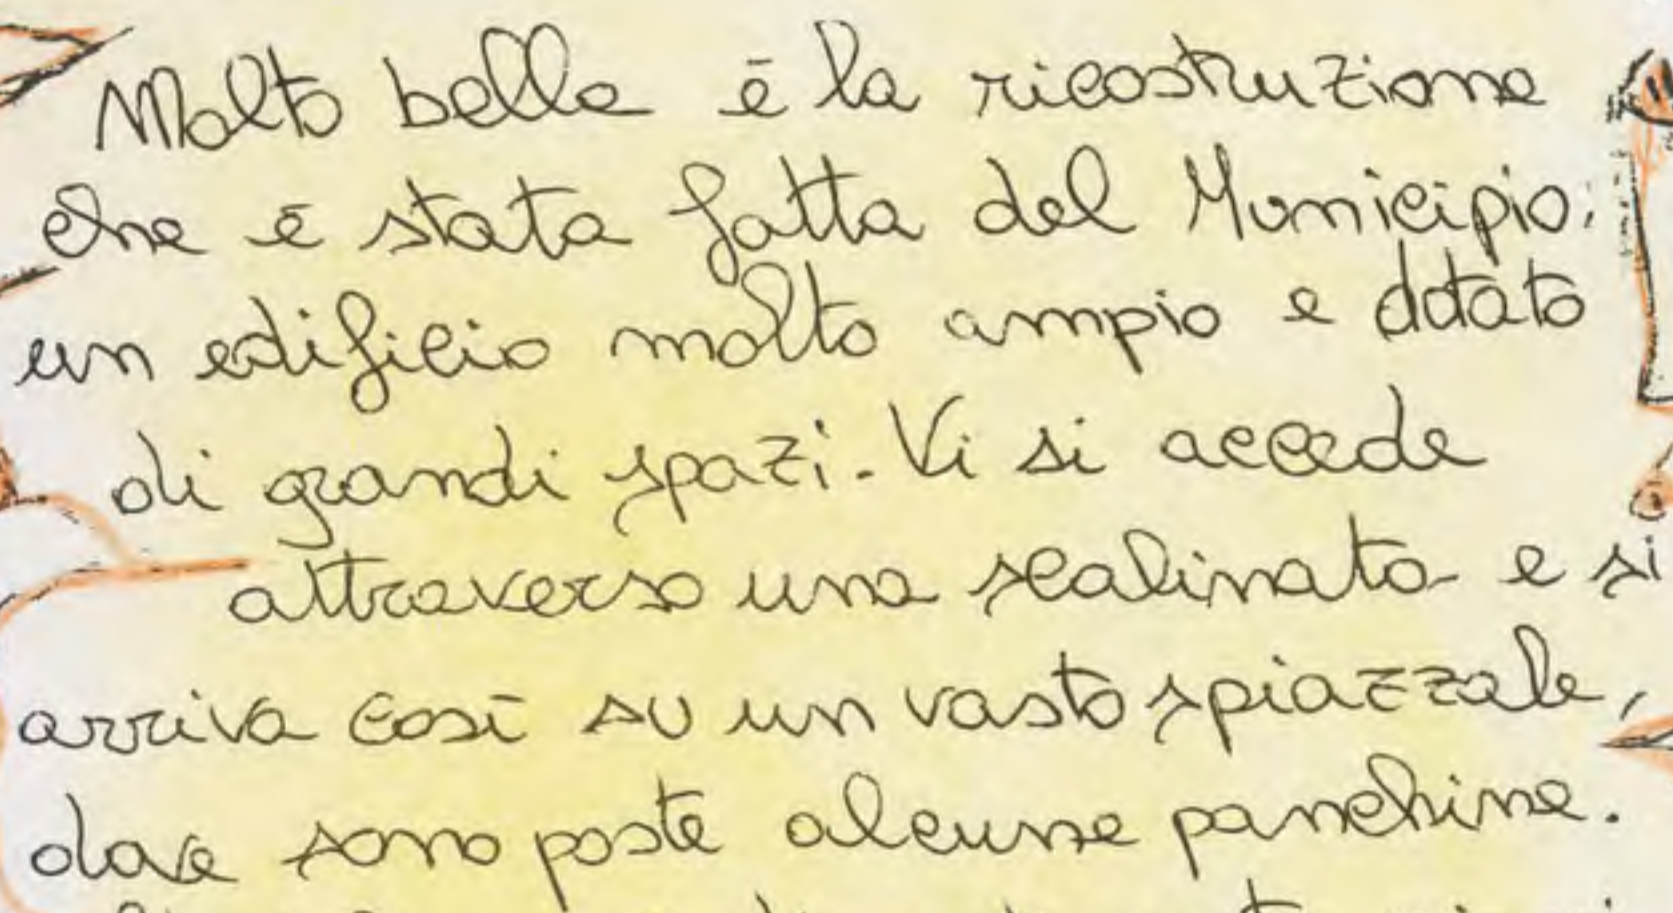 Molto bella è la ricostruzione
che è stata fatta del Municipio:
un edificio molto ampio e dotato
di grandi spazi. Vi si accede
attraverso una scalinata e si
arriva così su un vasto spiazzale,
dove sono poste alcune panchine.